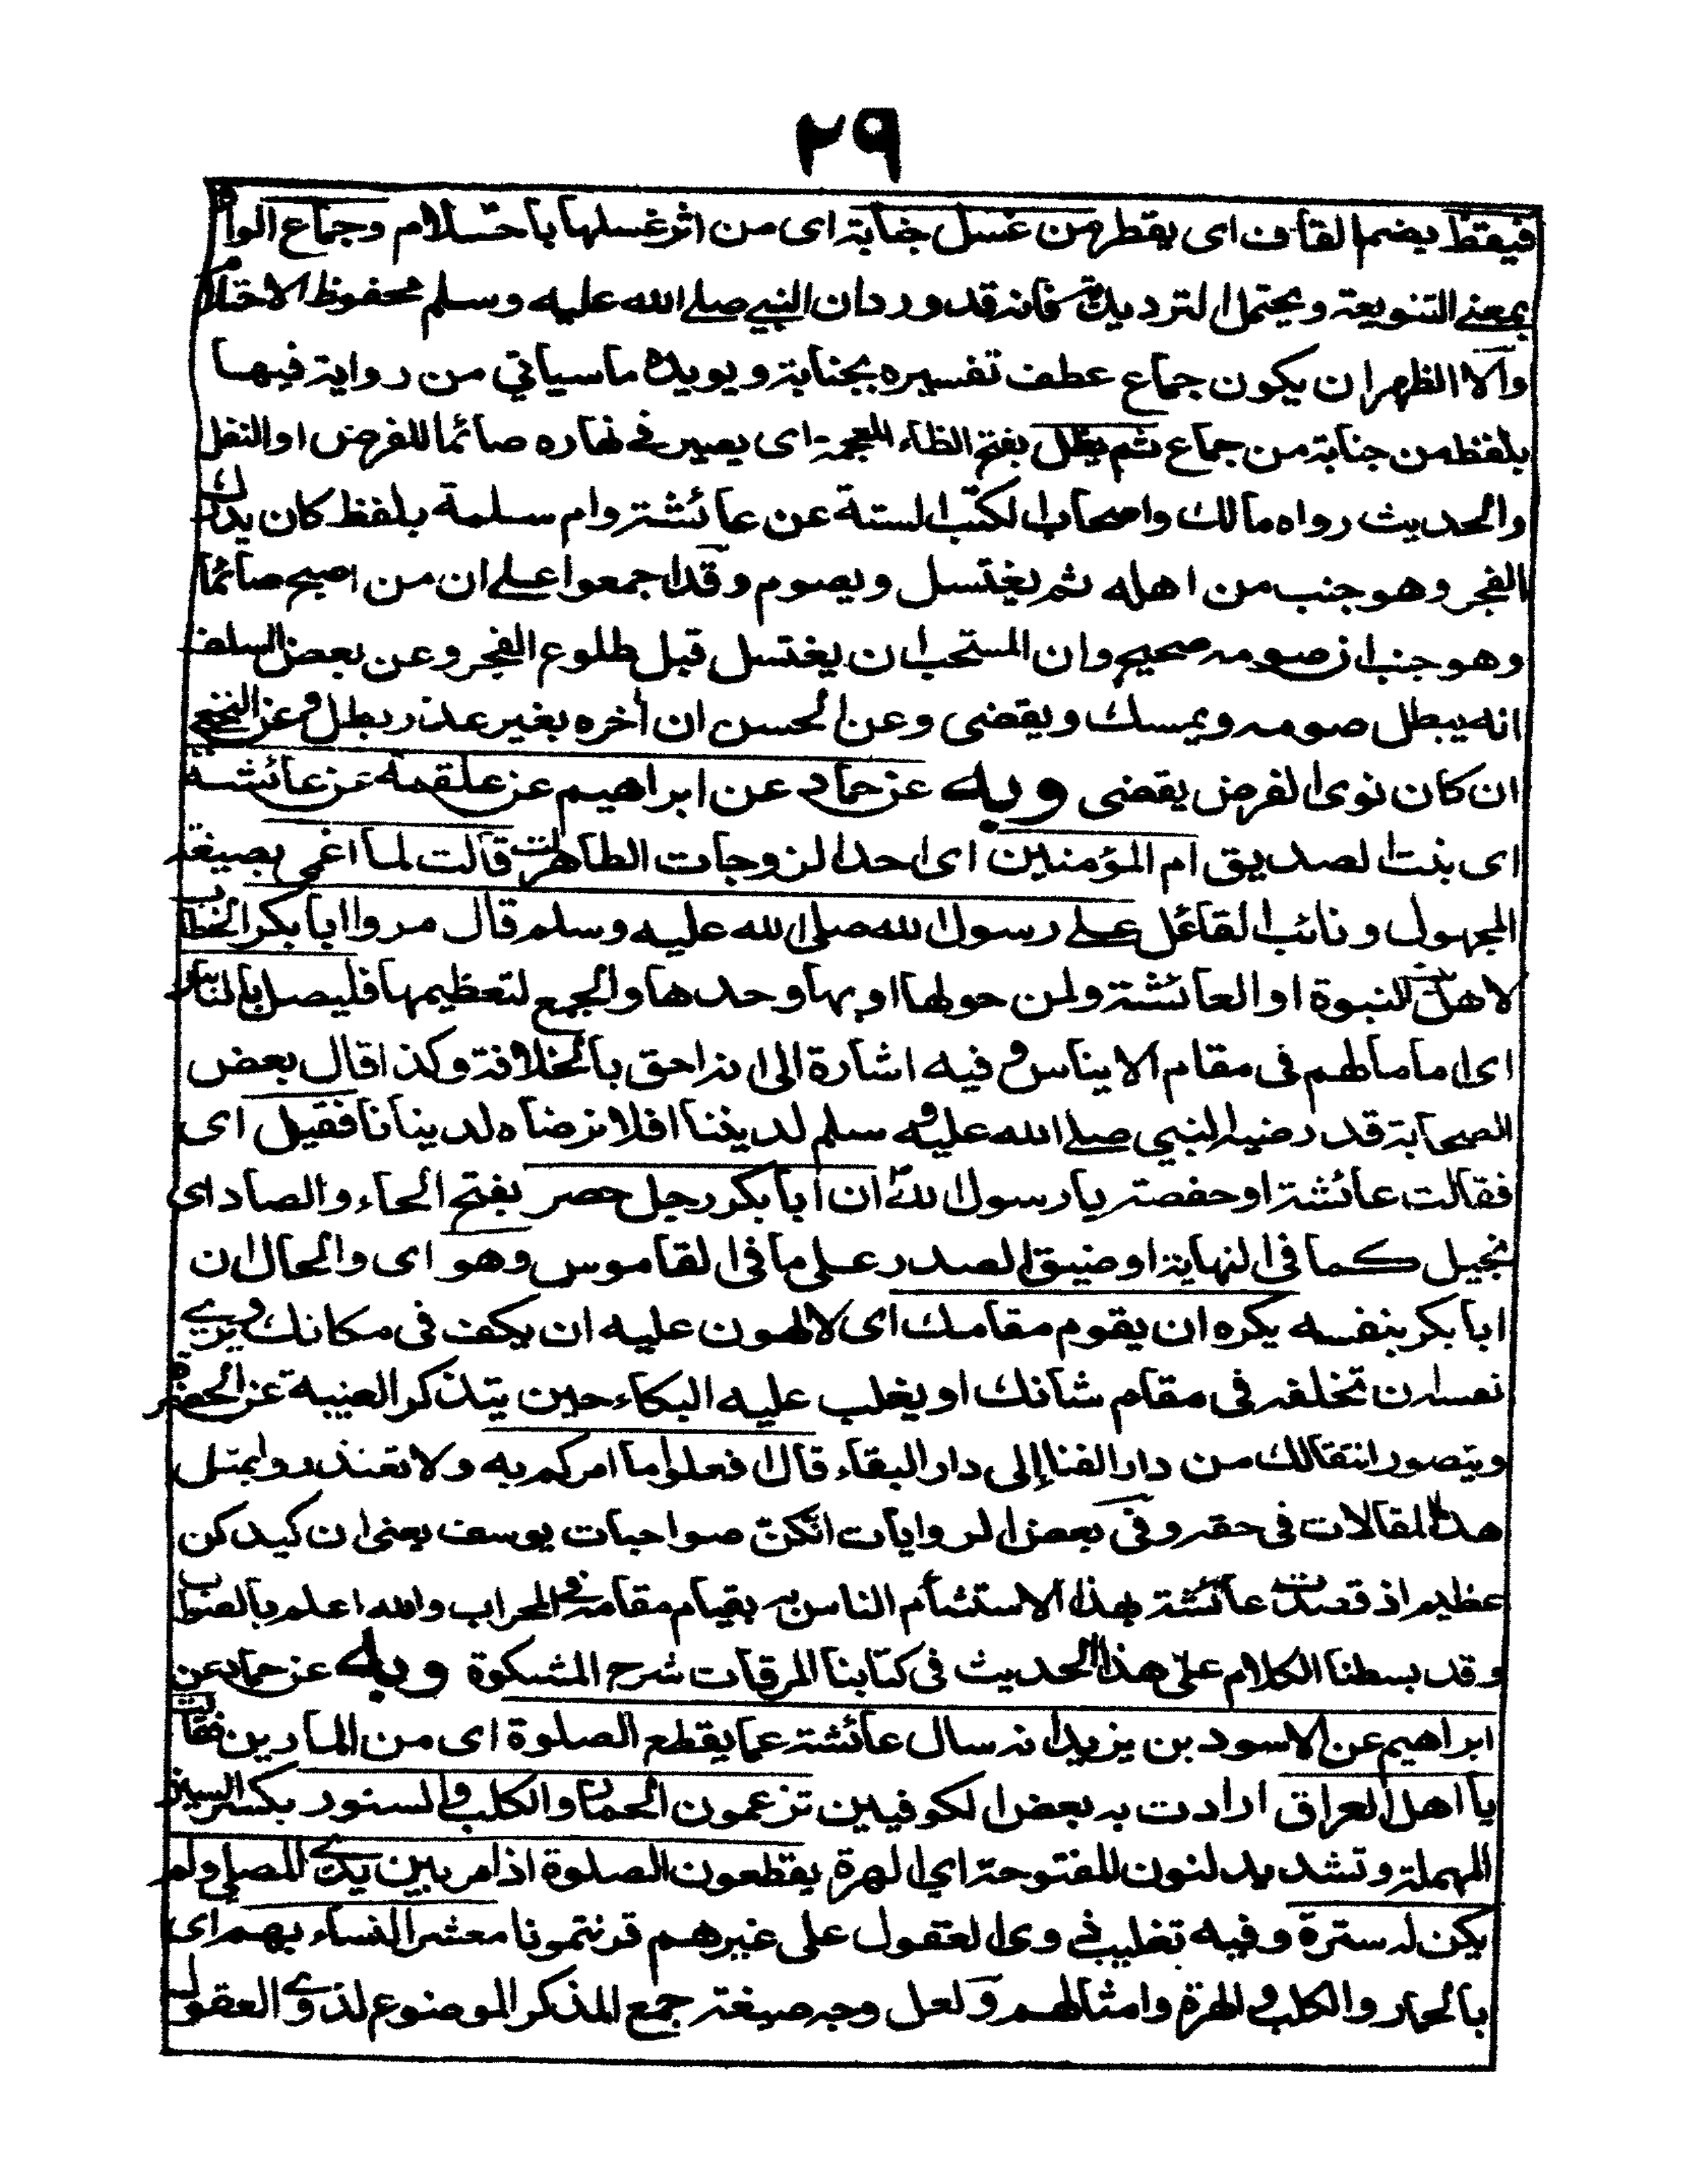 ٢٩
فيقطر بضم القاف اى يقطر من غسل جنابة اى من اثر غسلها باحتلام وجماع الواو
بمعنى التنويعة ويحتمل الترديدية فانه قد ورد ان النبي صلى الله عليه وسلم محفوظ الاحتلام
والاظهر ان يكون جماع عطف تفسيره بجنابة ويويده ماسياتي من رواية فيها
بلفظ من جنابة من جماع ثم يظل بفتح الظاء المعجمة اى يصير فى نهاره صائما للفرض او النفل
والحديث رواه مالك واصحاب الكتب الستة عن عائشة وام سلمة بلفظ كان يدركه
الفجر وهو جنب من اهله ثم يغتسل ويصوم وقد اجمعوا على ان من اصبح صائما
وهو جنب ان صومه صحيح وان المستحب ان يغتسل قبل طلوع الفجر وعن بعض السلف
انه يبطل صومه ويمسك ويقضى وعن الحسن ان أخره بغير عذر بطل وعن النخعي
ان كان نوى الفرض يقضى وبه عن حماد عن ابراهيم عن علقمة عن عائشة
اى بنت الصديق ام المؤمنين اى احد الزوجات الطاهرات قالت لما اغمى بصيغة
المجهول ونائب الفاعل على رسول الله صلى الله عليه وسلم قال مروا ابا بكر الخطاب
لاهل بيت النبوة او العائشة ولمن حولها او بها وحدها والجمع لتعظيمها فليصل بالناس
اى اماما لهم فى مقام الايناس وفيه اشارة الى انه احق بالخلافة وكذا قال بعض
الصحابة قد رضيه النبي صلى الله عليه وسلم لديننا افلا نرضاه لدينانا فقيل اى
فقالت عائشة او حفصة يا رسول الله ان أبا بكر رجل حصر بفتح الحاء والصاد اى
بخيل كما فى النهاية او ضيق الصدر على ما فى القاموس وهو اى والحال ان
ابا بكر بنفسه يكره ان يقوم مقامك اى لا لهون عليه ان يكف فى مكانك ويرى
نفسه ان تخلفه فى مقام شانك او يغلب عليه البكاء حين يتذكر الغيبة عن الحضرة
ويتصور انتقالك من دار الفنا إلى دار البقاء قال افعلوا ما امركم به ولا تعتذروا بمثل
هذه المقالات فى حقه وفى بعض الروايات انكن صواحبات يوسف يعنى ان كيدكن
عظيم اذ قصدت عائشة بهذا الاستشأم الناس به بقيام مقامه فى المحراب والله اعلم بالصواب
وقد بسطنا الكلام على هذا الحديث فى كتابنا المرقات شرح المشكوة وبه عن حماد عن
ابراهيم عن الاسود بن يزيد انه سال عائشة عما يقطع الصلوة اى من المارين فقالت
يا اهل العراق ارادت به بعض الكوفيين تزعمون ان الحمار والكلب والسنور بكسر السين
المهملة وتشديد لنون للمفتوحة اى الهرة يقطعون الصلوة اذا مر بين يدى المصلي ولم
يكن له سترة وفيه تغليب ذوى العقول على غيرهم قرنتمونا معشر النساء بهم اى
بالحمار والكلب والهرة وامثالهم ولعل وجه صيغة جمع المذكر الموضوع لذوى العقول